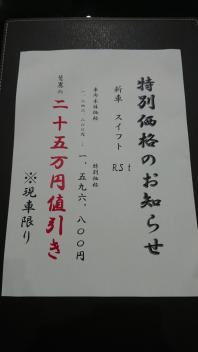 特別価格のお知らせ
新車 スイフト RSt
車両本体価格 特別価格
→ 一、五九六、八〇〇円
驚愕の 二十五万円値引き
※現車限り